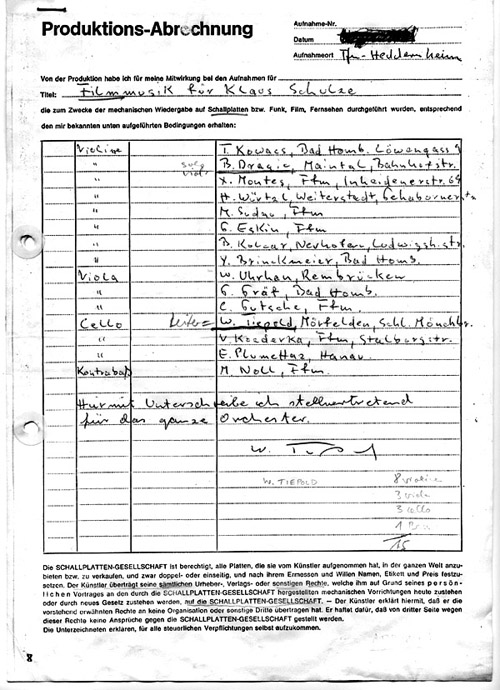 Produktions-Abrechnung
Aufnahme-Nr.
Datum
Aufnahmeort Ffm-Heddernheim
Von der Produktion habe ich für meine Mitwirkung bei den Aufnahmen für
Titel: Filmmusik für Klaus Schulze
die zum Zwecke der mechanischen Wiedergabe auf Schallplatten bzw. Funk, Film, Fernsehen durchgeführt wurden, entsprechend
den mir bekannten unten aufgeführten Bedingungen erhalten:
Violine T. Kovacs, Bad Homb. Löwengass 9
" B. Dragic, Maintal, Bahnhofstr.
" X. Montes, Ffm, Inheidenerstr. 69
" H. Würtzl, Weiterstedt,
" M. Ffm
" G. Eskin, Ffm
" B. Neuhofen, Ludwigsh. str.
" Y. Brinckmeier, Bad Homb.
Viola W. Uhrhan, Rembrücken
" G. Gräf, Bad Homb.
" C. Gutsche, Ffm.
Cello Leiter = W. Tiepold, Mörfelden, Schl. Mönchbr.
" V. Ffm, Stalburgstr.
" E. Plumettaz, Hanau
Kontrabaß M. Noll, Ffm.
Hiermit Unterschreibe ich stellvertretend
für das ganze Orchester.
W. TIEPOLD 8 Violine
3 viola
3 cello
1 Bass
15
Die SCHALLPLATTEN-GESELLSCHAFT ist berechtigt, alle Platten, die sie vom Künstler aufgenommen hat, in der ganzen Welt anzu-
bieten bzw. zu verkaufen, und zwar doppel- oder einseitig, und nach ihrem Ermessen und Willen Namen, Etikett und Preis festzu-
setzen. Der Künstler überträgt seine sämtlichen Urheber-, Verlags- oder sonstigen Rechte, welche ihm auf Grund seines persön-
lichen Vortrages an den durch die SCHALLPLATTEN-GESELLSCHAFT hergestellten mechanischen Vorrichtungen heute zustehen
oder durch neues Gesetz zustehen werden, auf die SCHALLPLATTEN-GESELLSCHAFT. – Der Künstler erklärt hiermit, daß er die
vorstehend erwähnten Rechte an keine Organisation oder sonstige Dritte übertragen hat. Er haftet dafür, daß von dritter Seite wegen
dieser Rechte keine Ansprüche gegen die SCHALLPLATTEN-GESELLSCHAFT gestellt werden.
Die Unterzeichneten erklären, für alle steuerlichen Verpflichtungen selbst aufzukommen.
8